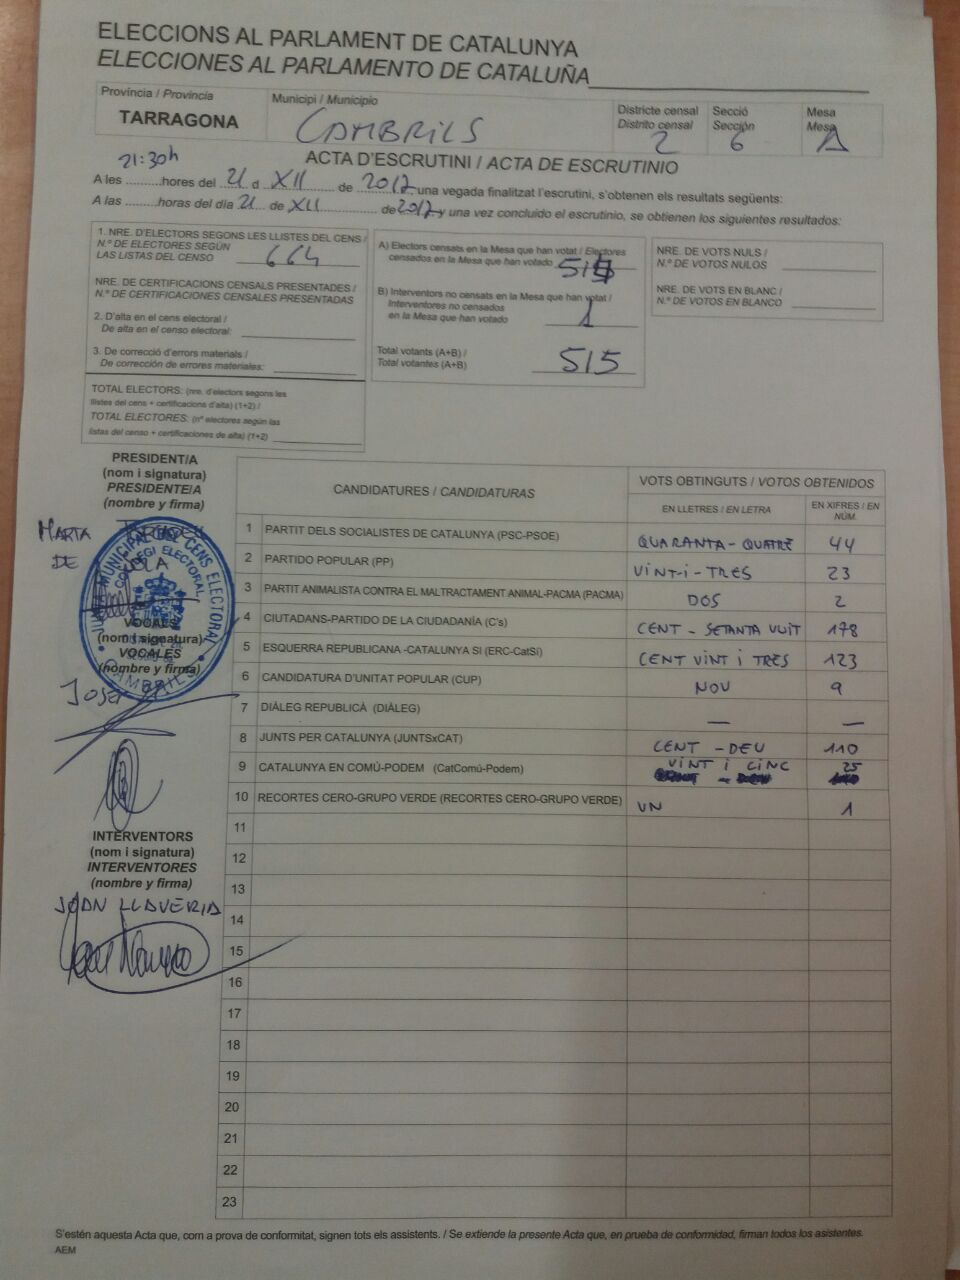 ELECCIONS AL PARLAMENT DE CATALUNYA
ELECCIONES AL PARLAMENTO DE CATALUÑA
Província / Provincia
TARRAGONA
Municipi / Municipio
CAMBRILS
Districte censal
Distrito censal
2
Secció
Sección
6
Mesa
Mesa
A
ACTA D'ESCRUTINI / ACTA DE ESCRUTINIO
21:30h
A les ..........hores del 21 d XII de 2017, una vegada finalitzat l'escrutini, s'obtenen els resultats següents:
A las ..........horas del día 21 de XII de 2017 y una vez concluido el escrutinio, se obtienen los siguientes resultados:
1. NRE. D'ELECTORS SEGONS LES LLISTES DEL CENS /
N.º DE ELECTORES SEGÚN
LAS LISTAS DEL CENSO 664
NRE. DE CERTIFICACIONS CENSALS PRESENTADES /
N.º DE CERTIFICACIONES CENSALES PRESENTADAS
2. D'alta en el cens electoral /
De alta en el censo electoral:
3. De correcció d'errors materials /
De corrección de errores materiales:
TOTAL ELECTORS: (nre. d'electors segons les
llistes del cens + certificacions d'alta) (1+2) /
TOTAL ELECTORES: (nº electores según las
listas del censo + certificaciones de alta) (1+2)
A) Electors censats en la Mesa que han votat / Electores
censados en la Mesa que han votado
B) Interventors no censats en la Mesa que han votat /
Interventores no censados
en la Mesa que han votado 1
Total votants (A+B) /
Total votantes (A+B) 515
NRE. DE VOTS NULS /
N.º DE VOTOS NULOS
NRE. DE VOTS EN BLANC /
N.º DE VOTOS EN BLANCO
PRESIDENT/A
(nom i signatura)
PRESIDENTE/A
(nombre y firma)
MARTA
DE
VOCALS
(nom i signatura)
VOCALES
(nombre y firma)
JOSEP
INTERVENTORS
(nom i signatura)
INTERVENTORES
(nombre y firma)
JOAN LLAVERIA
CANDIDATURES / CANDIDATURAS
VOTS OBTINGUTS / VOTOS OBTENIDOS
EN LLETRES / EN LETRA
EN XIFRES / EN NÚM.
1 PARTIT DELS SOCIALISTES DE CATALUNYA (PSC-PSOE) QUARANTA-QUATRE 44
2 PARTIDO POPULAR (PP) VINT-I-TRES 23
3 PARTIT ANIMALISTA CONTRA EL MALTRACTAMENT ANIMAL-PACMA (PACMA) DOS 2
4 CIUTADANS-PARTIDO DE LA CIUDADANÍA (C's) CENT - SETANTA VUIT 178
5 ESQUERRA REPUBLICANA -CATALUNYA SI (ERC-CatSí) CENT VINT I TRES 123
6 CANDIDATURA D'UNITAT POPULAR (CUP) NOU 9
7 DIÀLEG REPUBLICÀ (DIÀLEG) — —
8 JUNTS PER CATALUNYA (JUNTSxCAT) CENT - DEU 110
9 CATALUNYA EN COMÚ-PODEM (CatComú-Podem) VINT I CINC 25
10 RECORTES CERO-GRUPO VERDE (RECORTES CERO-GRUPO VERDE) UN 1
11
12
13
14
15
16
17
18
19
20
21
22
23
S'estén aquesta Acta que, com a prova de conformitat, signen tots els assistents. / Se extiende la presente Acta que, en prueba de conformidad, firman todos los asistentes.
AEM